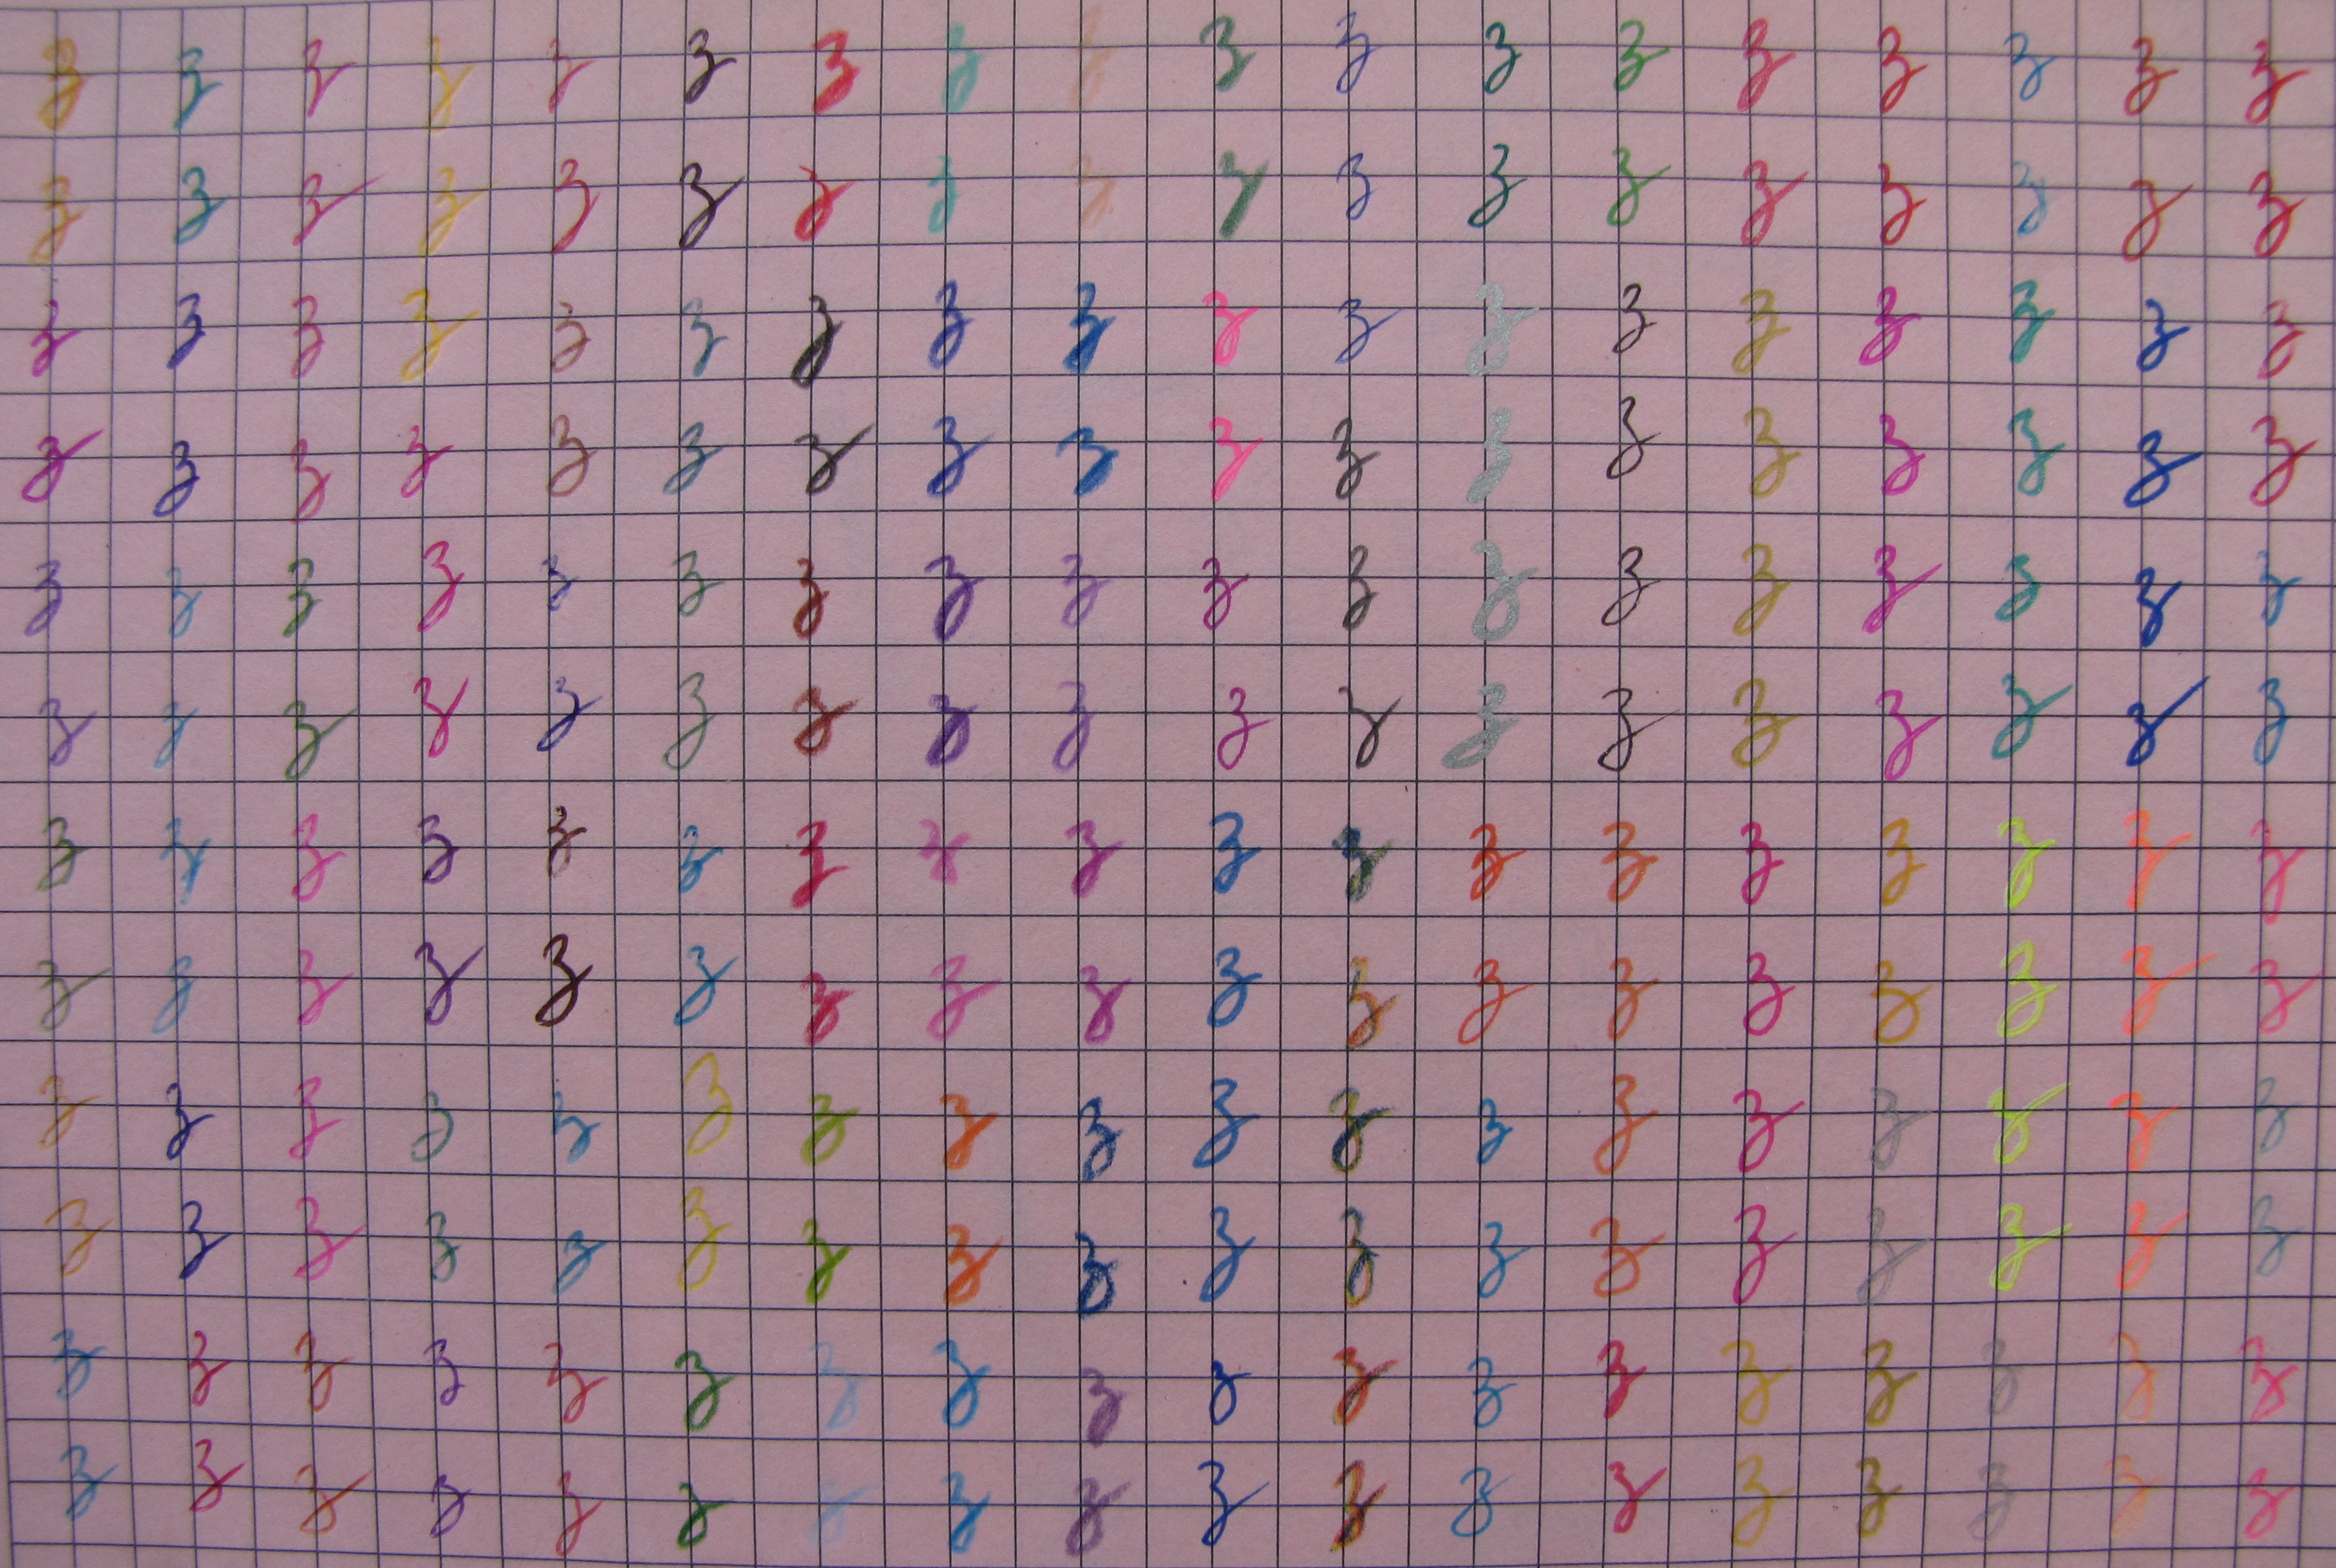 z z z z z z z z z z z z z z z z z z
z z z z z z z z z z z z z z z z z z
z z z z z z z z z z z z z z z z z z
z z z z z z z z z z z z z z z z z z
z z z z z z z z z z z z z z z z z z
z z z z z z z z z z z z z z z z z z
z z z z z z z z z z z z z z z z z z
z z z z z z z z z z z z z z z z z z
z z z z z z z z z z z z z z z z z z
z z z z z z z z z z z z z z z z z z
z z z z z z z z z z z z z z z z z z
z z z z z z z z z z z z z z z z z z